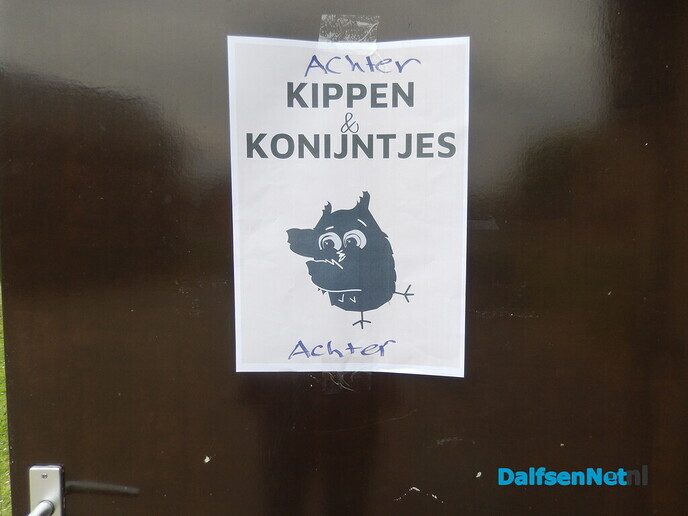 Achter
KIPPEN
&
KONIJNTJES
Achter
DalfsenNet.nl